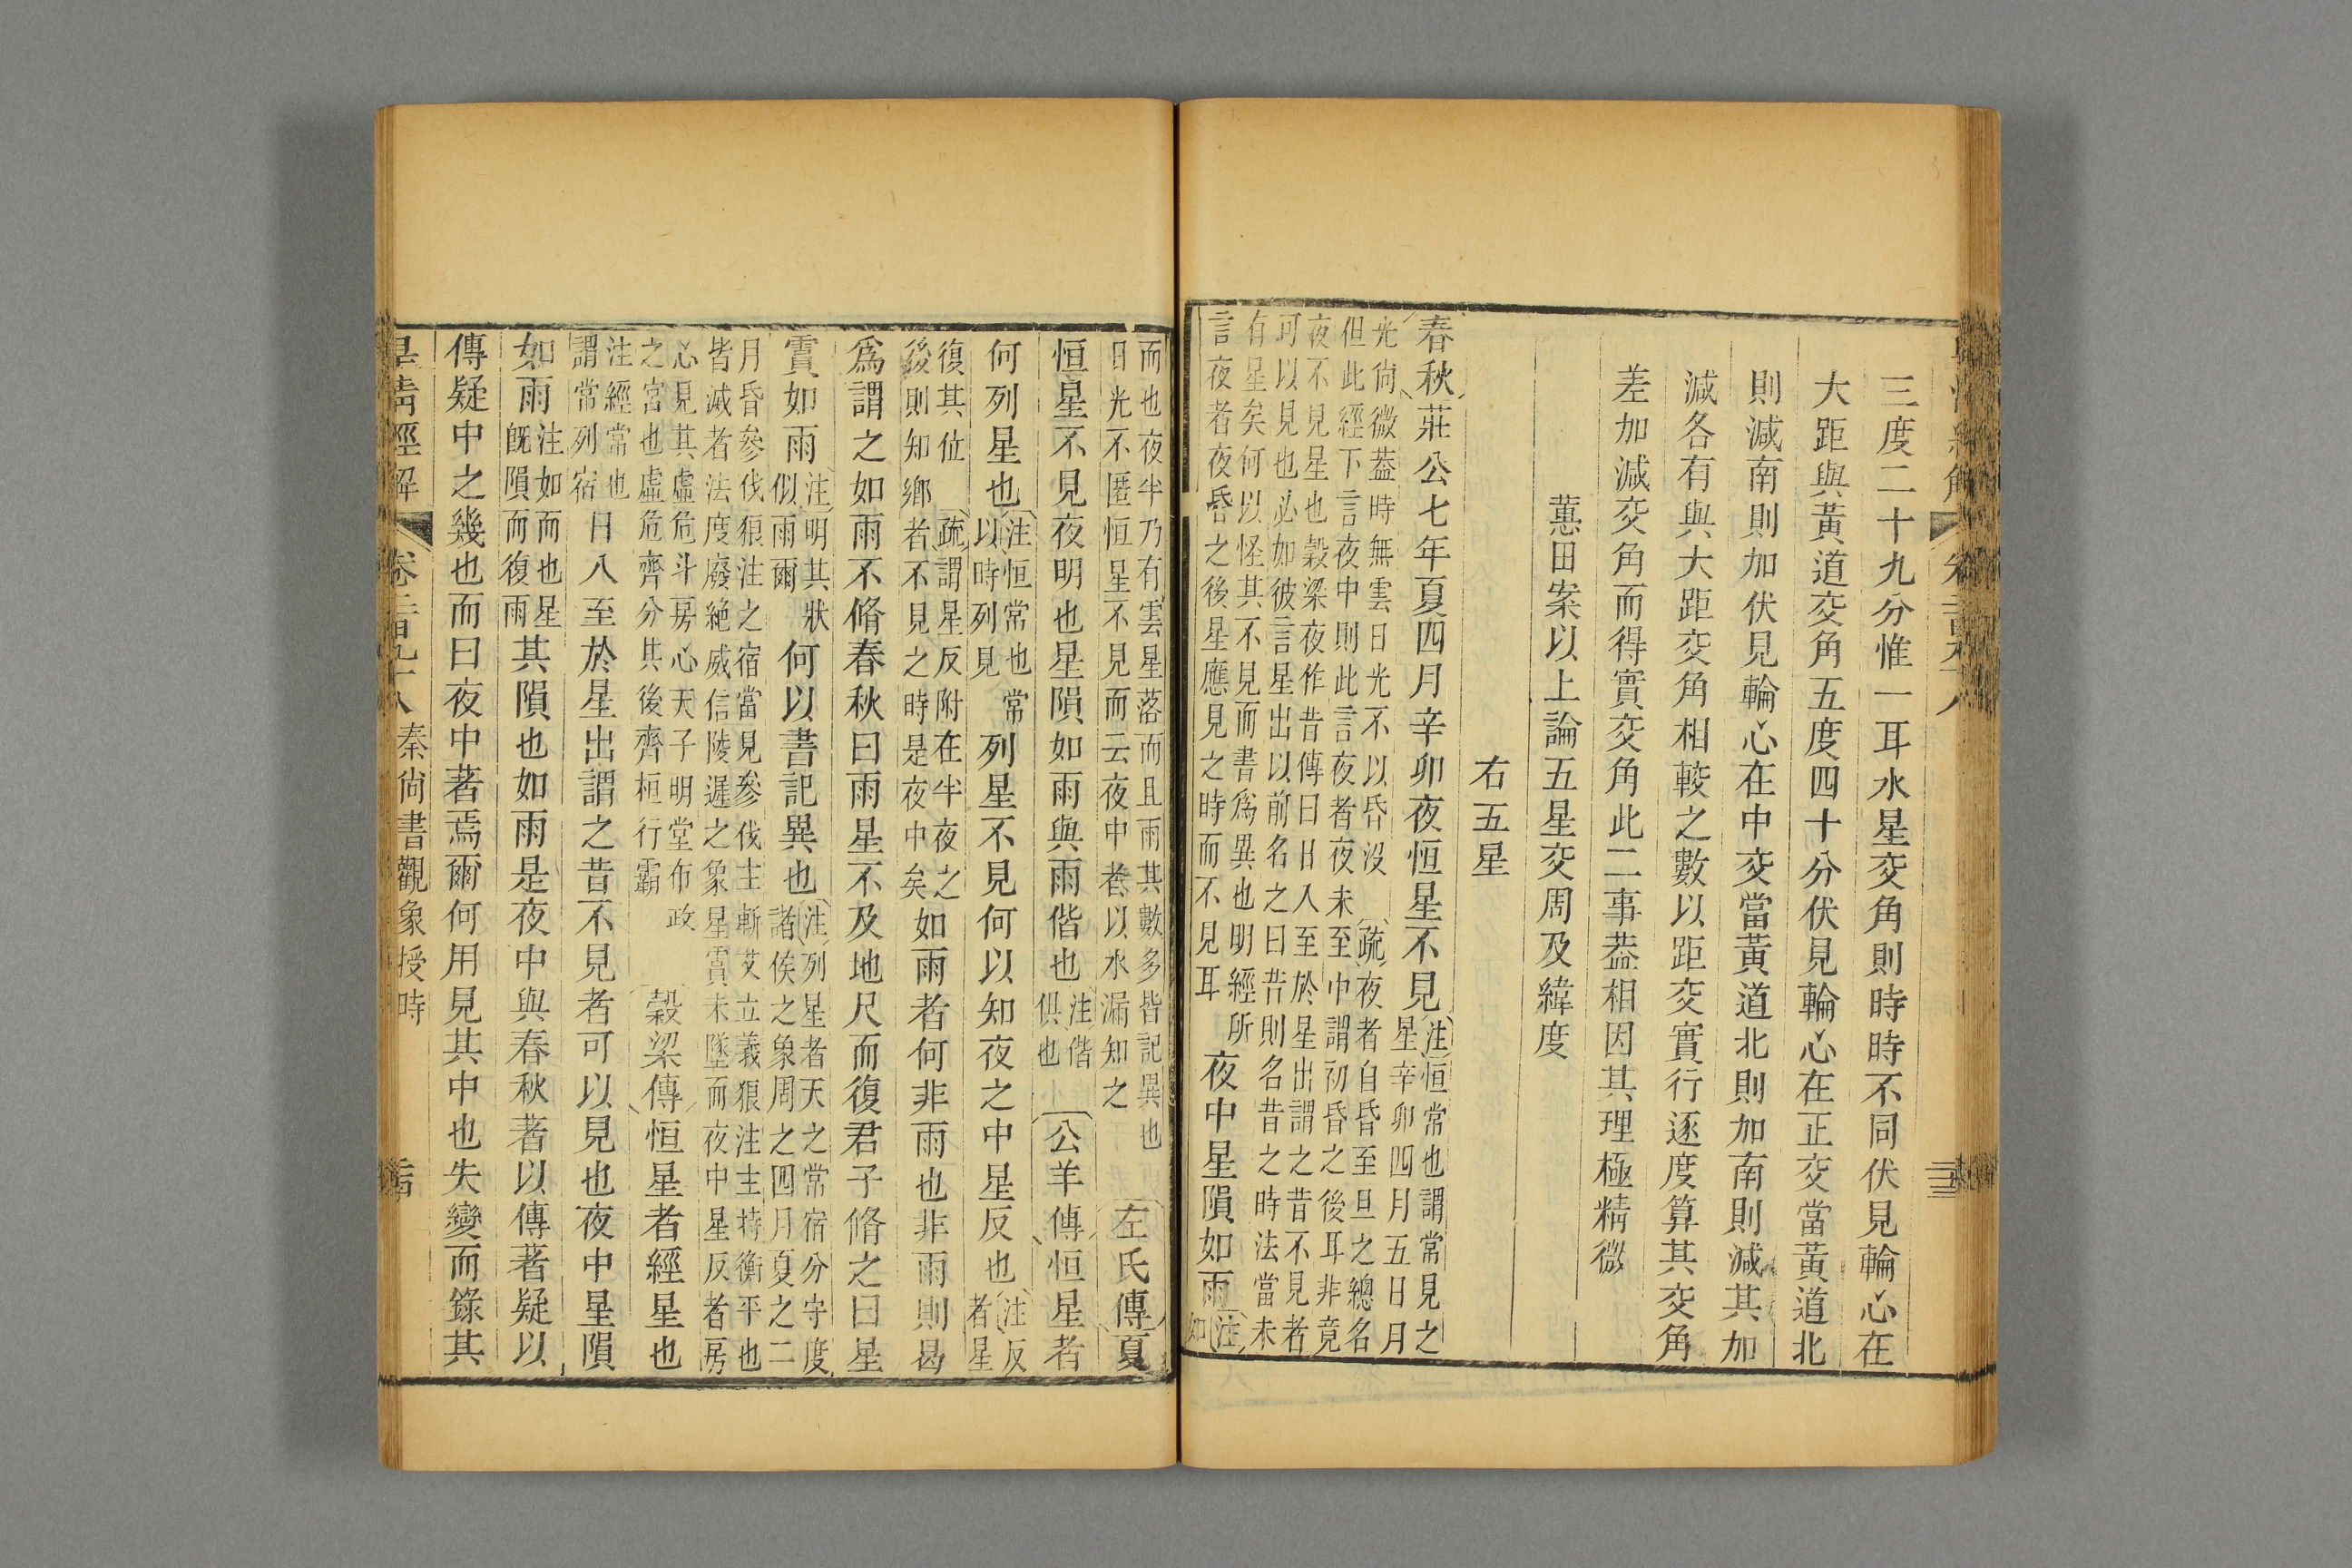 三度二十九分惟一耳水星交角則時時不同伏見輪心在
大距與黃道交角五度四十分伏見輪心在正交當黃道北
則減南則加伏見輪心在中交當黃道北則加南則減其加
減各有與大距交角相較之數以距交實行逐度算其交角
差加減交角而得實交角此二事葢相因其理極精微
蕙田案以上論五星交周及緯度
右五星
春秋莊公七年夏四月辛卯夜恒星不見
注恒常也謂常見之
星辛卯四月五日月
光尙微葢時無雲日光不以昏沒
疏夜者自昏至旦之總名
但此經下言夜中則此言夜者夜未至中謂初昏之後耳非竟
夜不見星也穀梁夜作昔傳曰日入至於星出謂之昔不見者
可以見也必如彼言星出以前名之曰昔則名昔之時法當未
有星矣何以怪其不見而書爲異也明經所
言夜者夜昏之後星應見之時而不見耳
夜中星隕如雨
注
如
而也夜半乃有雲星落而且雨其數多皆記異也
日光不匿恒星不見而云夜中者以水漏知之
左氏傳夏
恒星不見夜明也星隕如雨與雨偕也
注偕
俱也
公羊傳恒星者
何列星也
注恒常也常
以時列見
列星不見何以知夜之中星反也
注反
者星
復其位
疏謂星反附在半夜之
後則知鄉者不見之時是夜中矣
如雨者何非雨也非雨則曷
爲謂之如雨不脩春秋曰雨星不及地尺而復君子脩之曰星
霣如雨
注明其狀
似雨爾
何以書記異也
注列星者天之常宿分守度
諸侯之象周之四月夏之二
月昏參伐狼注之宿當見參伐主斬艾立義狼注主持衡平也
皆滅者法度廢絶威信陵遲之象星霣未墜而夜中星反者房
心見其虛危斗房心天子明堂布政
之宮也虛危齊分其後齊桓行霸
穀梁傳恒星者經星也
注經常也
謂常列宿
日入至於星出謂之昔不見者可以見也夜中星隕
如雨
注如而也星
旣隕而復雨
其隕也如雨是夜中與春秋著以傳著疑以
傳疑中之幾也而曰夜中著焉爾何用見其中也失變而錄其
秦尙書觀象授時